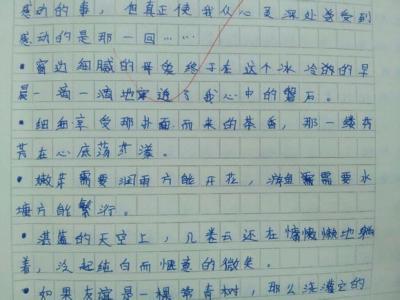 感动的事，但真正使我从心灵深处感受到
感动的是那一回……
·窗边细腻的母爱终于在这个冰冷的早
晨一滴一滴地穿透了我心中的磐石。
·细细享受那扑面而来的茶香，那一缕芬
芳在心底荡漾。
·嫩芽需要润雨方能开花，游鱼需要水
塘方能繁衍。
·湛蓝的天空上，几卷云还在慵懒地躺
着，泛起纯白而惬意的微笑。
·如果友谊是一棵常青树，那么浇灌它的